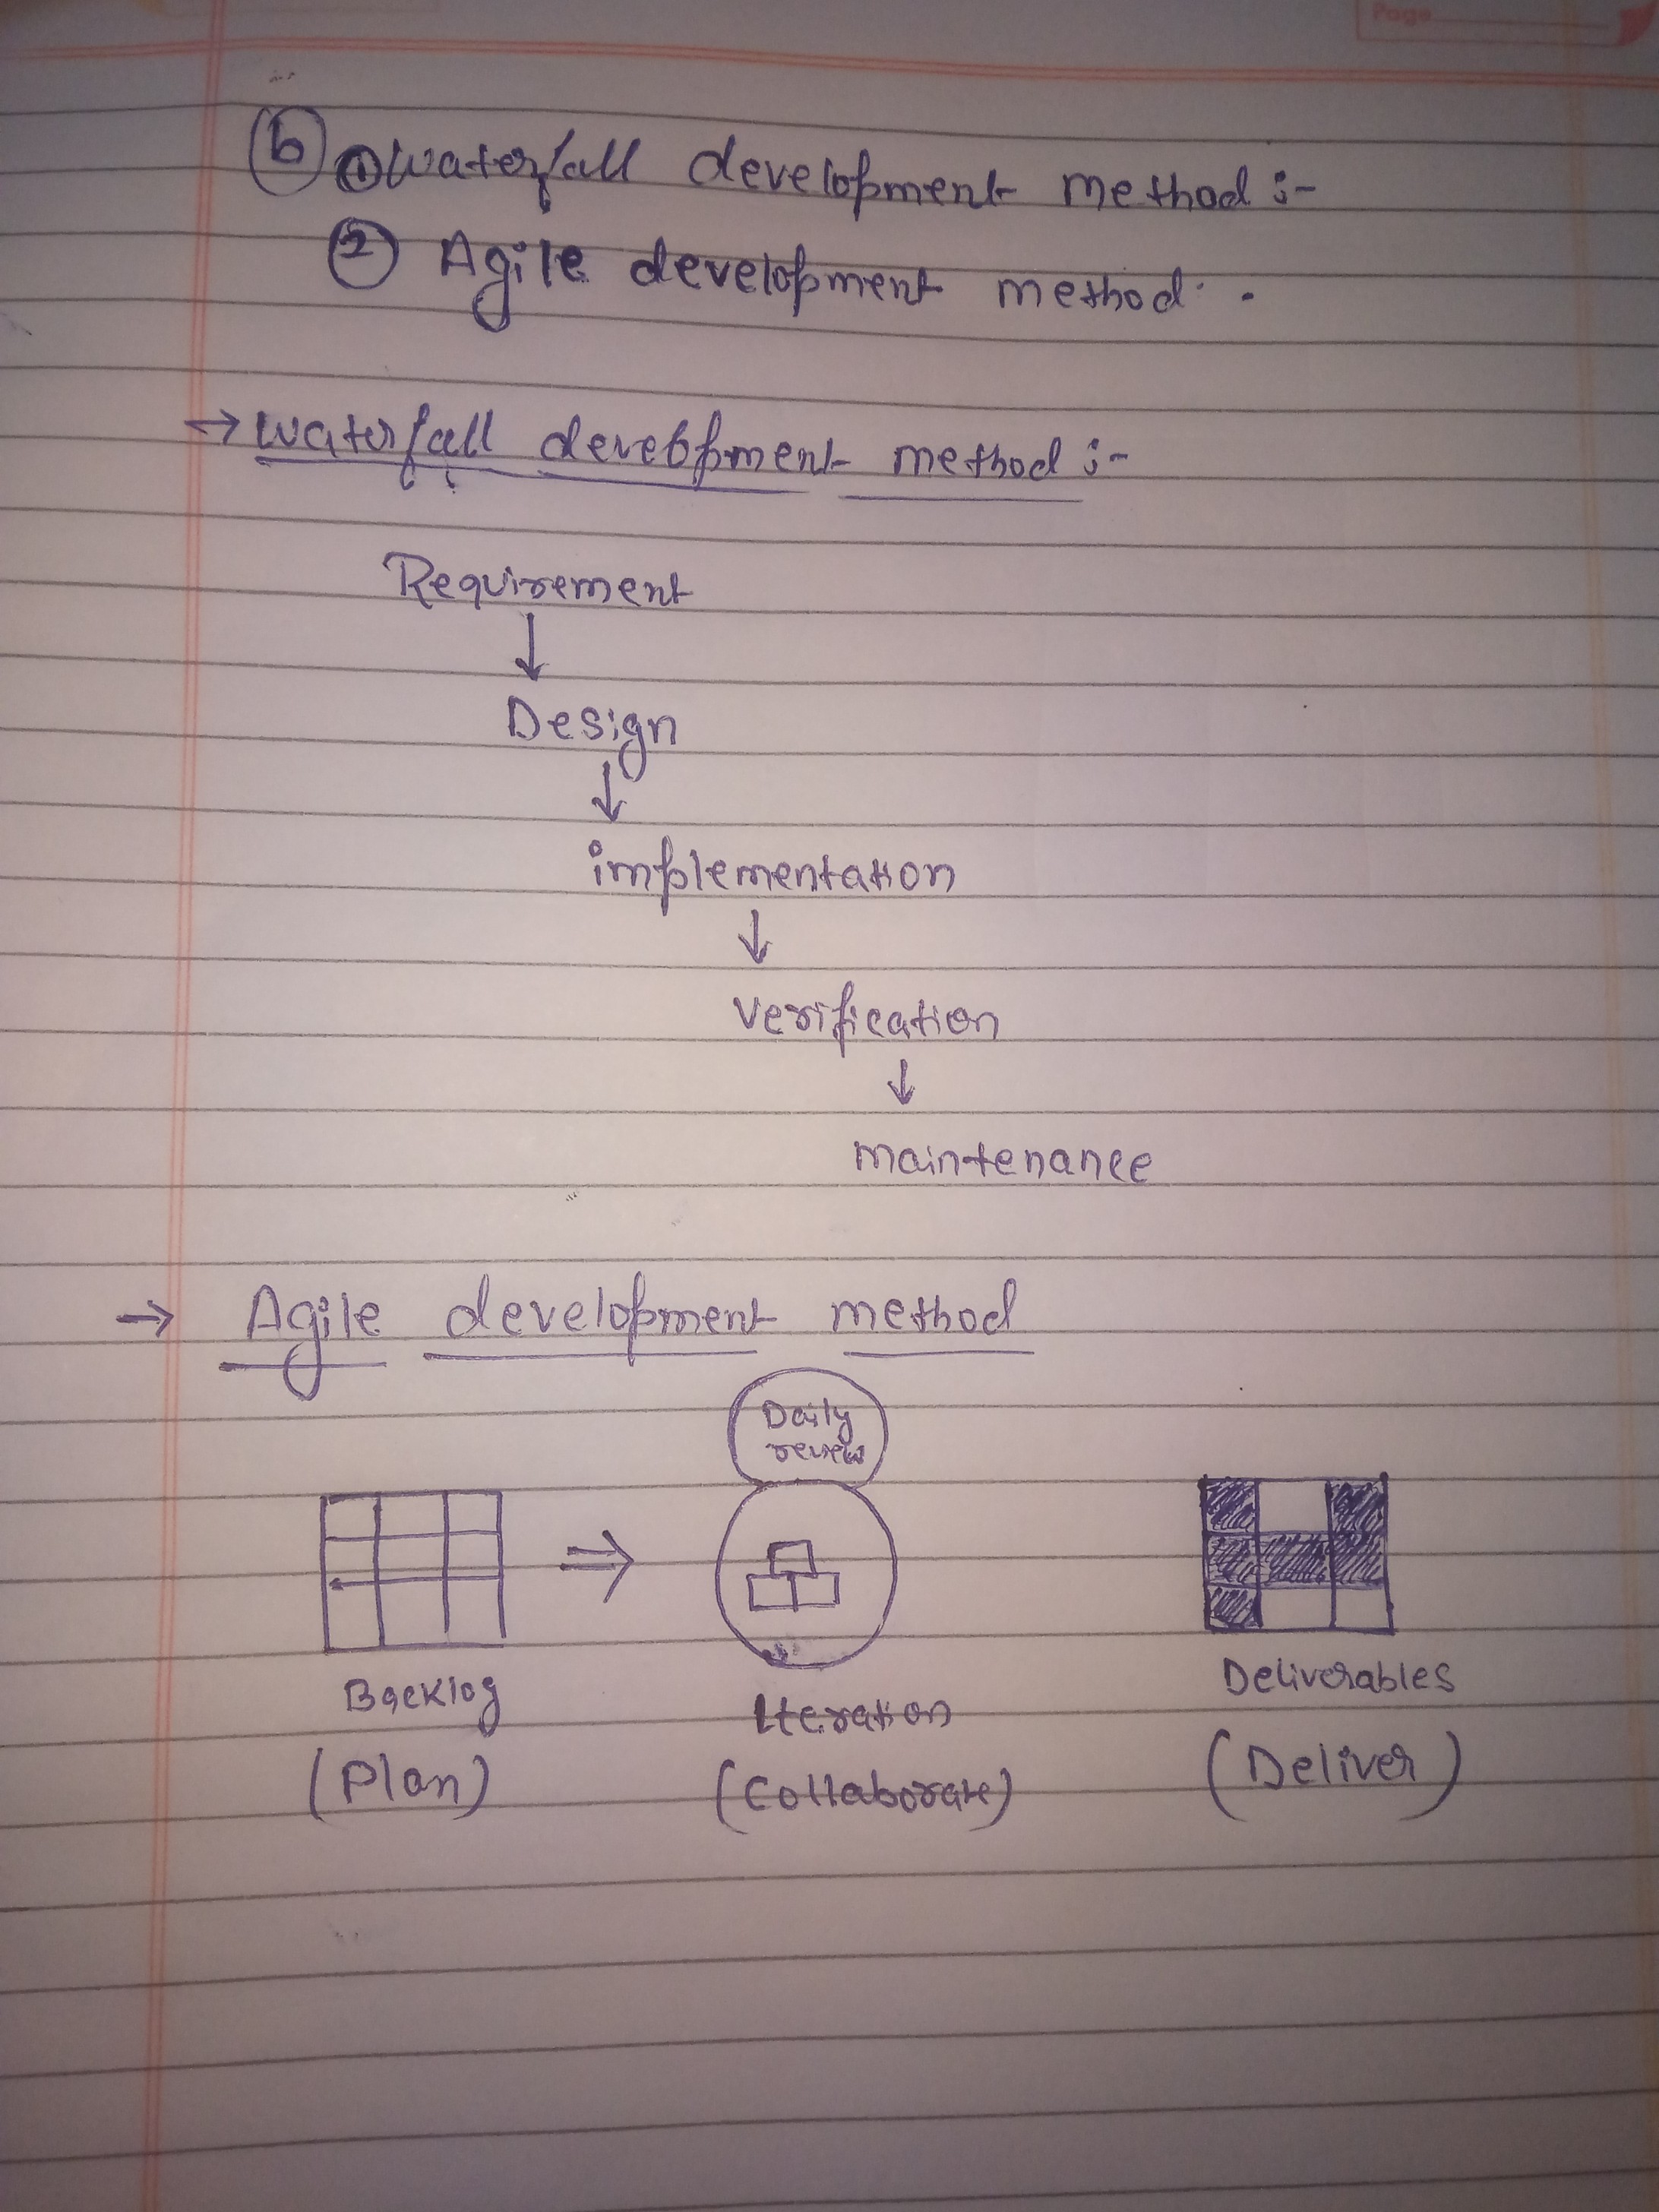 Page
b ① Waterfall development method :-
② Agile development method .
→ Waterfall development method :-
Requirement
↓
Design
↓
implementation
↓
verification
↓
maintenance
→ Agile development method
Daily
review
⇒
Backlog
Iteration
Deliverables
(Plan)
(Collaborate)
(Deliver)